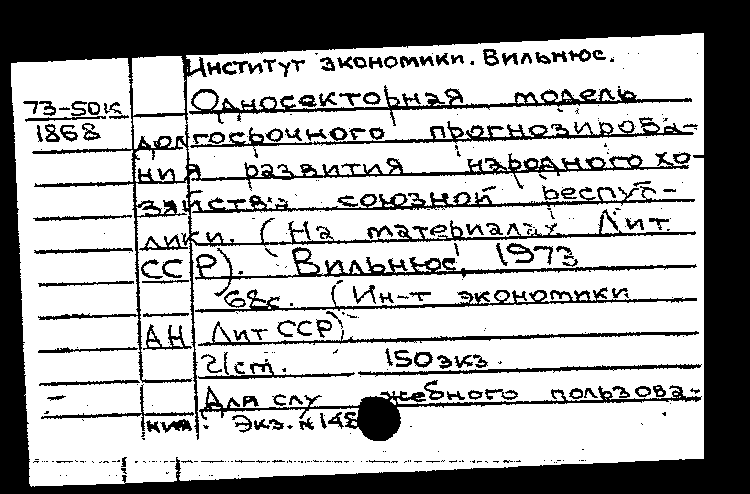 Институт экономики. Вильнюс.
73-50к
1868
Односекторная модель
долгосрочного прогнозирова-
ния развития народного хо-
зяйства союзной респуб-
лики. (На материалах Лит
ССР). Вильнюс, 1973
68с. (Ин-т экономики
АН Лит ССР).
150 экз.
Для служебного пользова-
ния. Экз. №